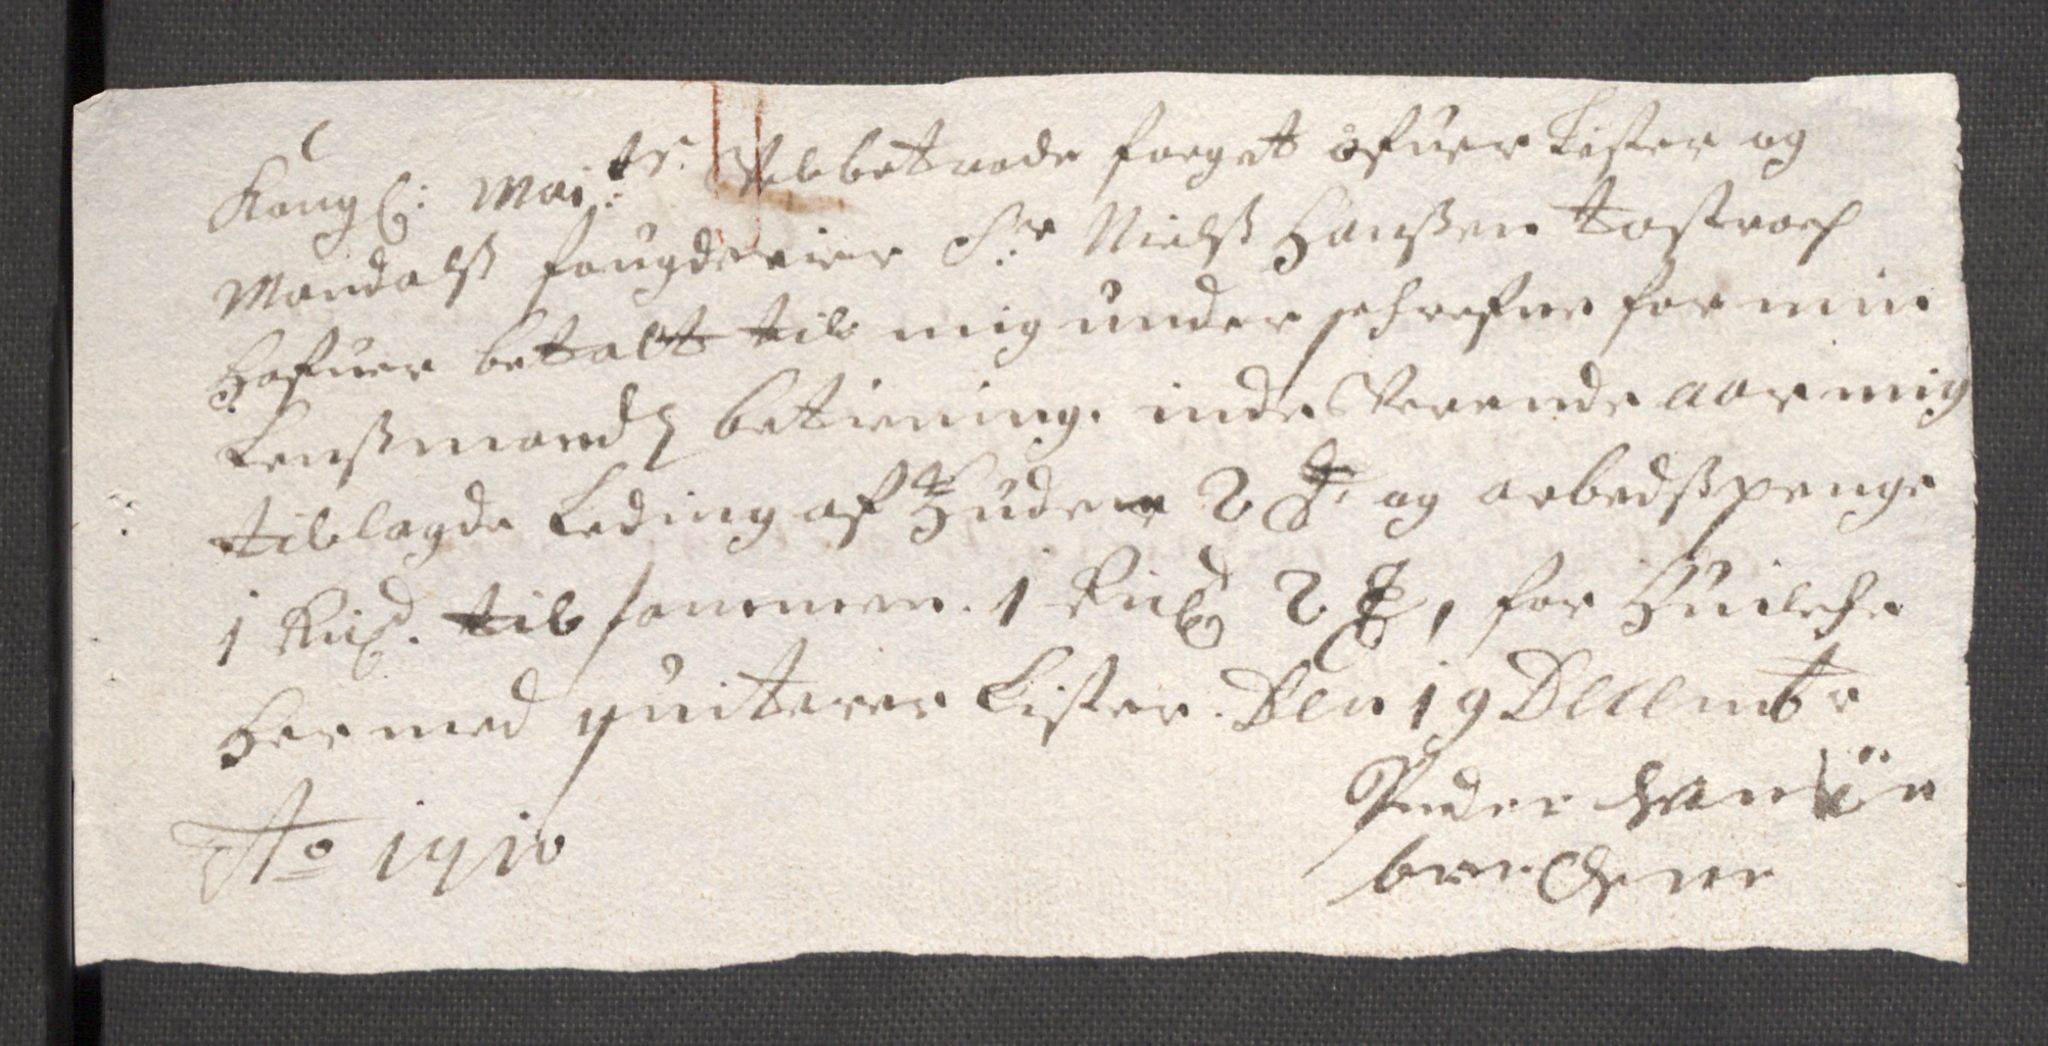 Kongl: Mai:ts: Velbetrode foeget ofuer Lister og
Mandalß fougderier Sr: Nielß Hanßen Tostroch
Hafuer betalt til mig under schrefne for min
Lenßmandß betiening inde Verende aar mig
tillagde Leding af Huder 2 og arbedßpenge
1 Rixd. til sammen 1 Rixd 2 , for Huilche
Her med quiterer Lister. Den 19 Decembr
Peder
Ao 1710